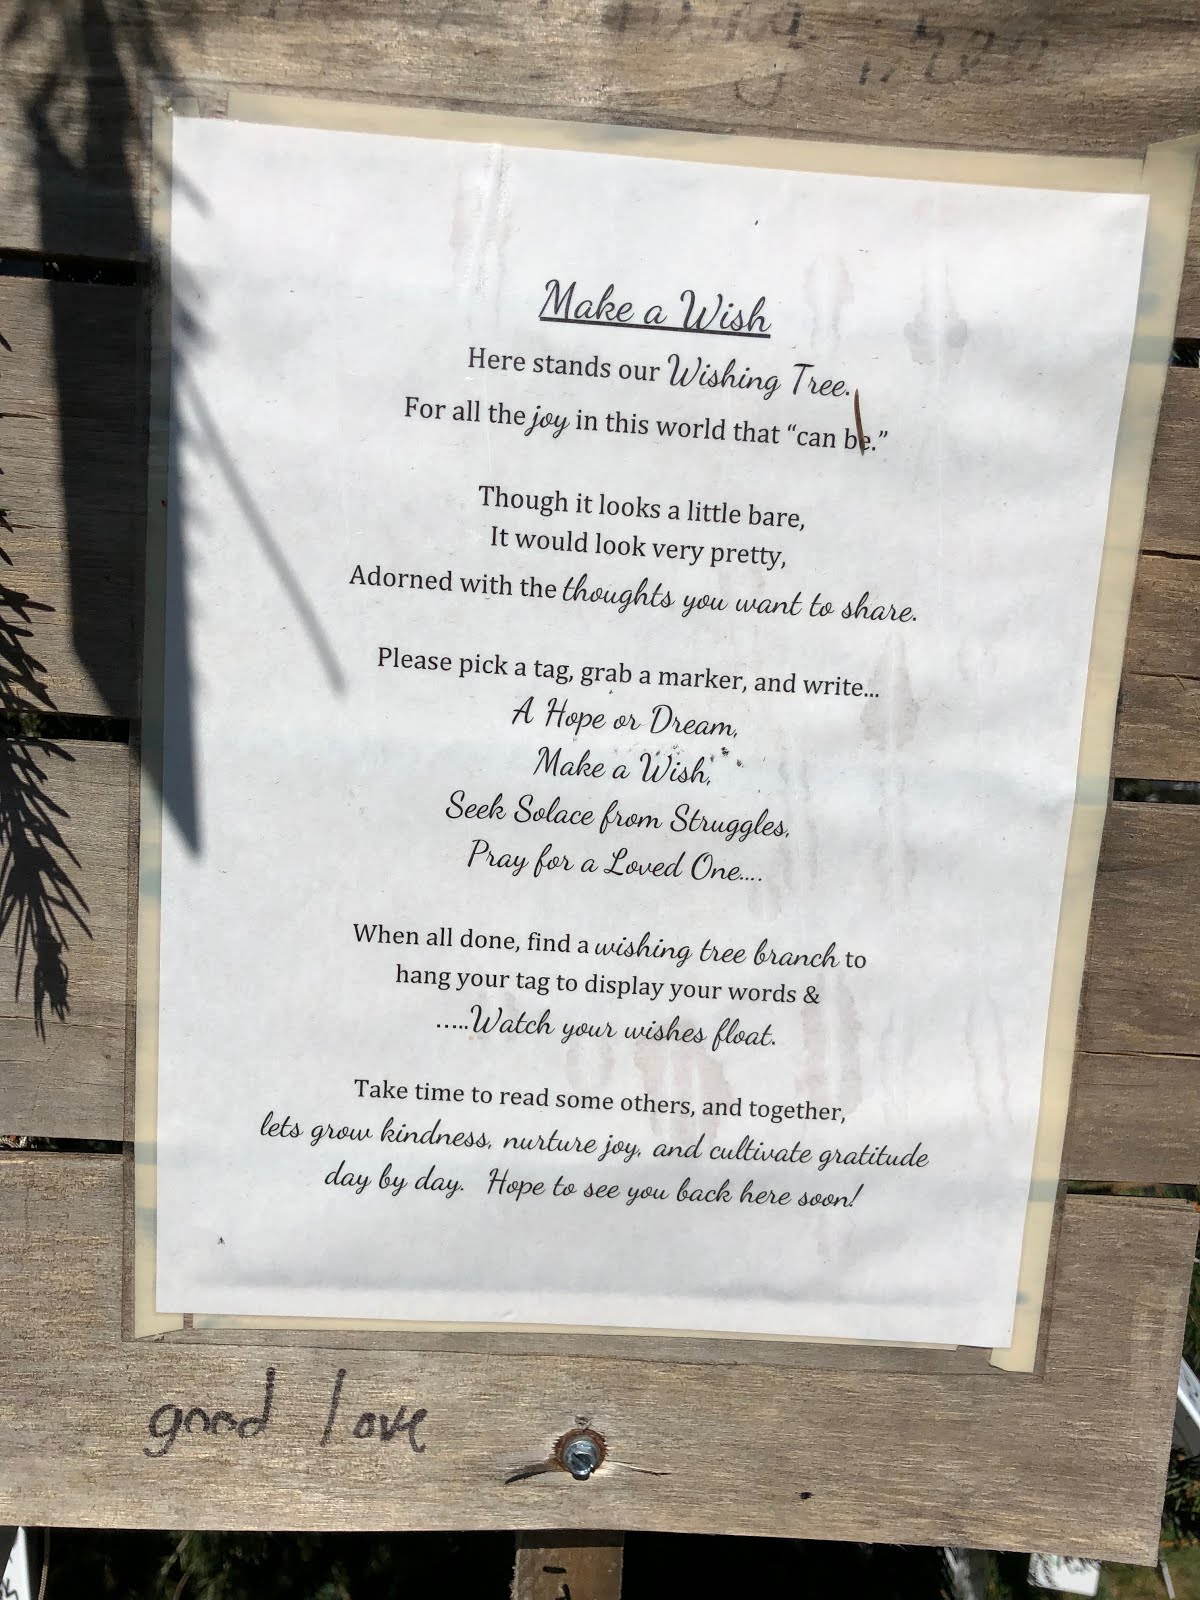 Make a Wish
Here stands our Wishing Tree.
For all the joy in this world that “can be.”
Though it looks a little bare,
It would look very pretty,
Adorned with the thoughts you want to share.
Please pick a tag, grab a marker, and write...
A Hope or Dream,
Make a Wish,
Seek Solace from Struggles,
Pray for a Loved One....
When all done, find a wishing tree branch to
hang your tag to display your words &
.....Watch your wishes float.
Take time to read some others, and together,
lets grow kindness, nurture joy, and cultivate gratitude
day by day. Hope to see you back here soon!
good love